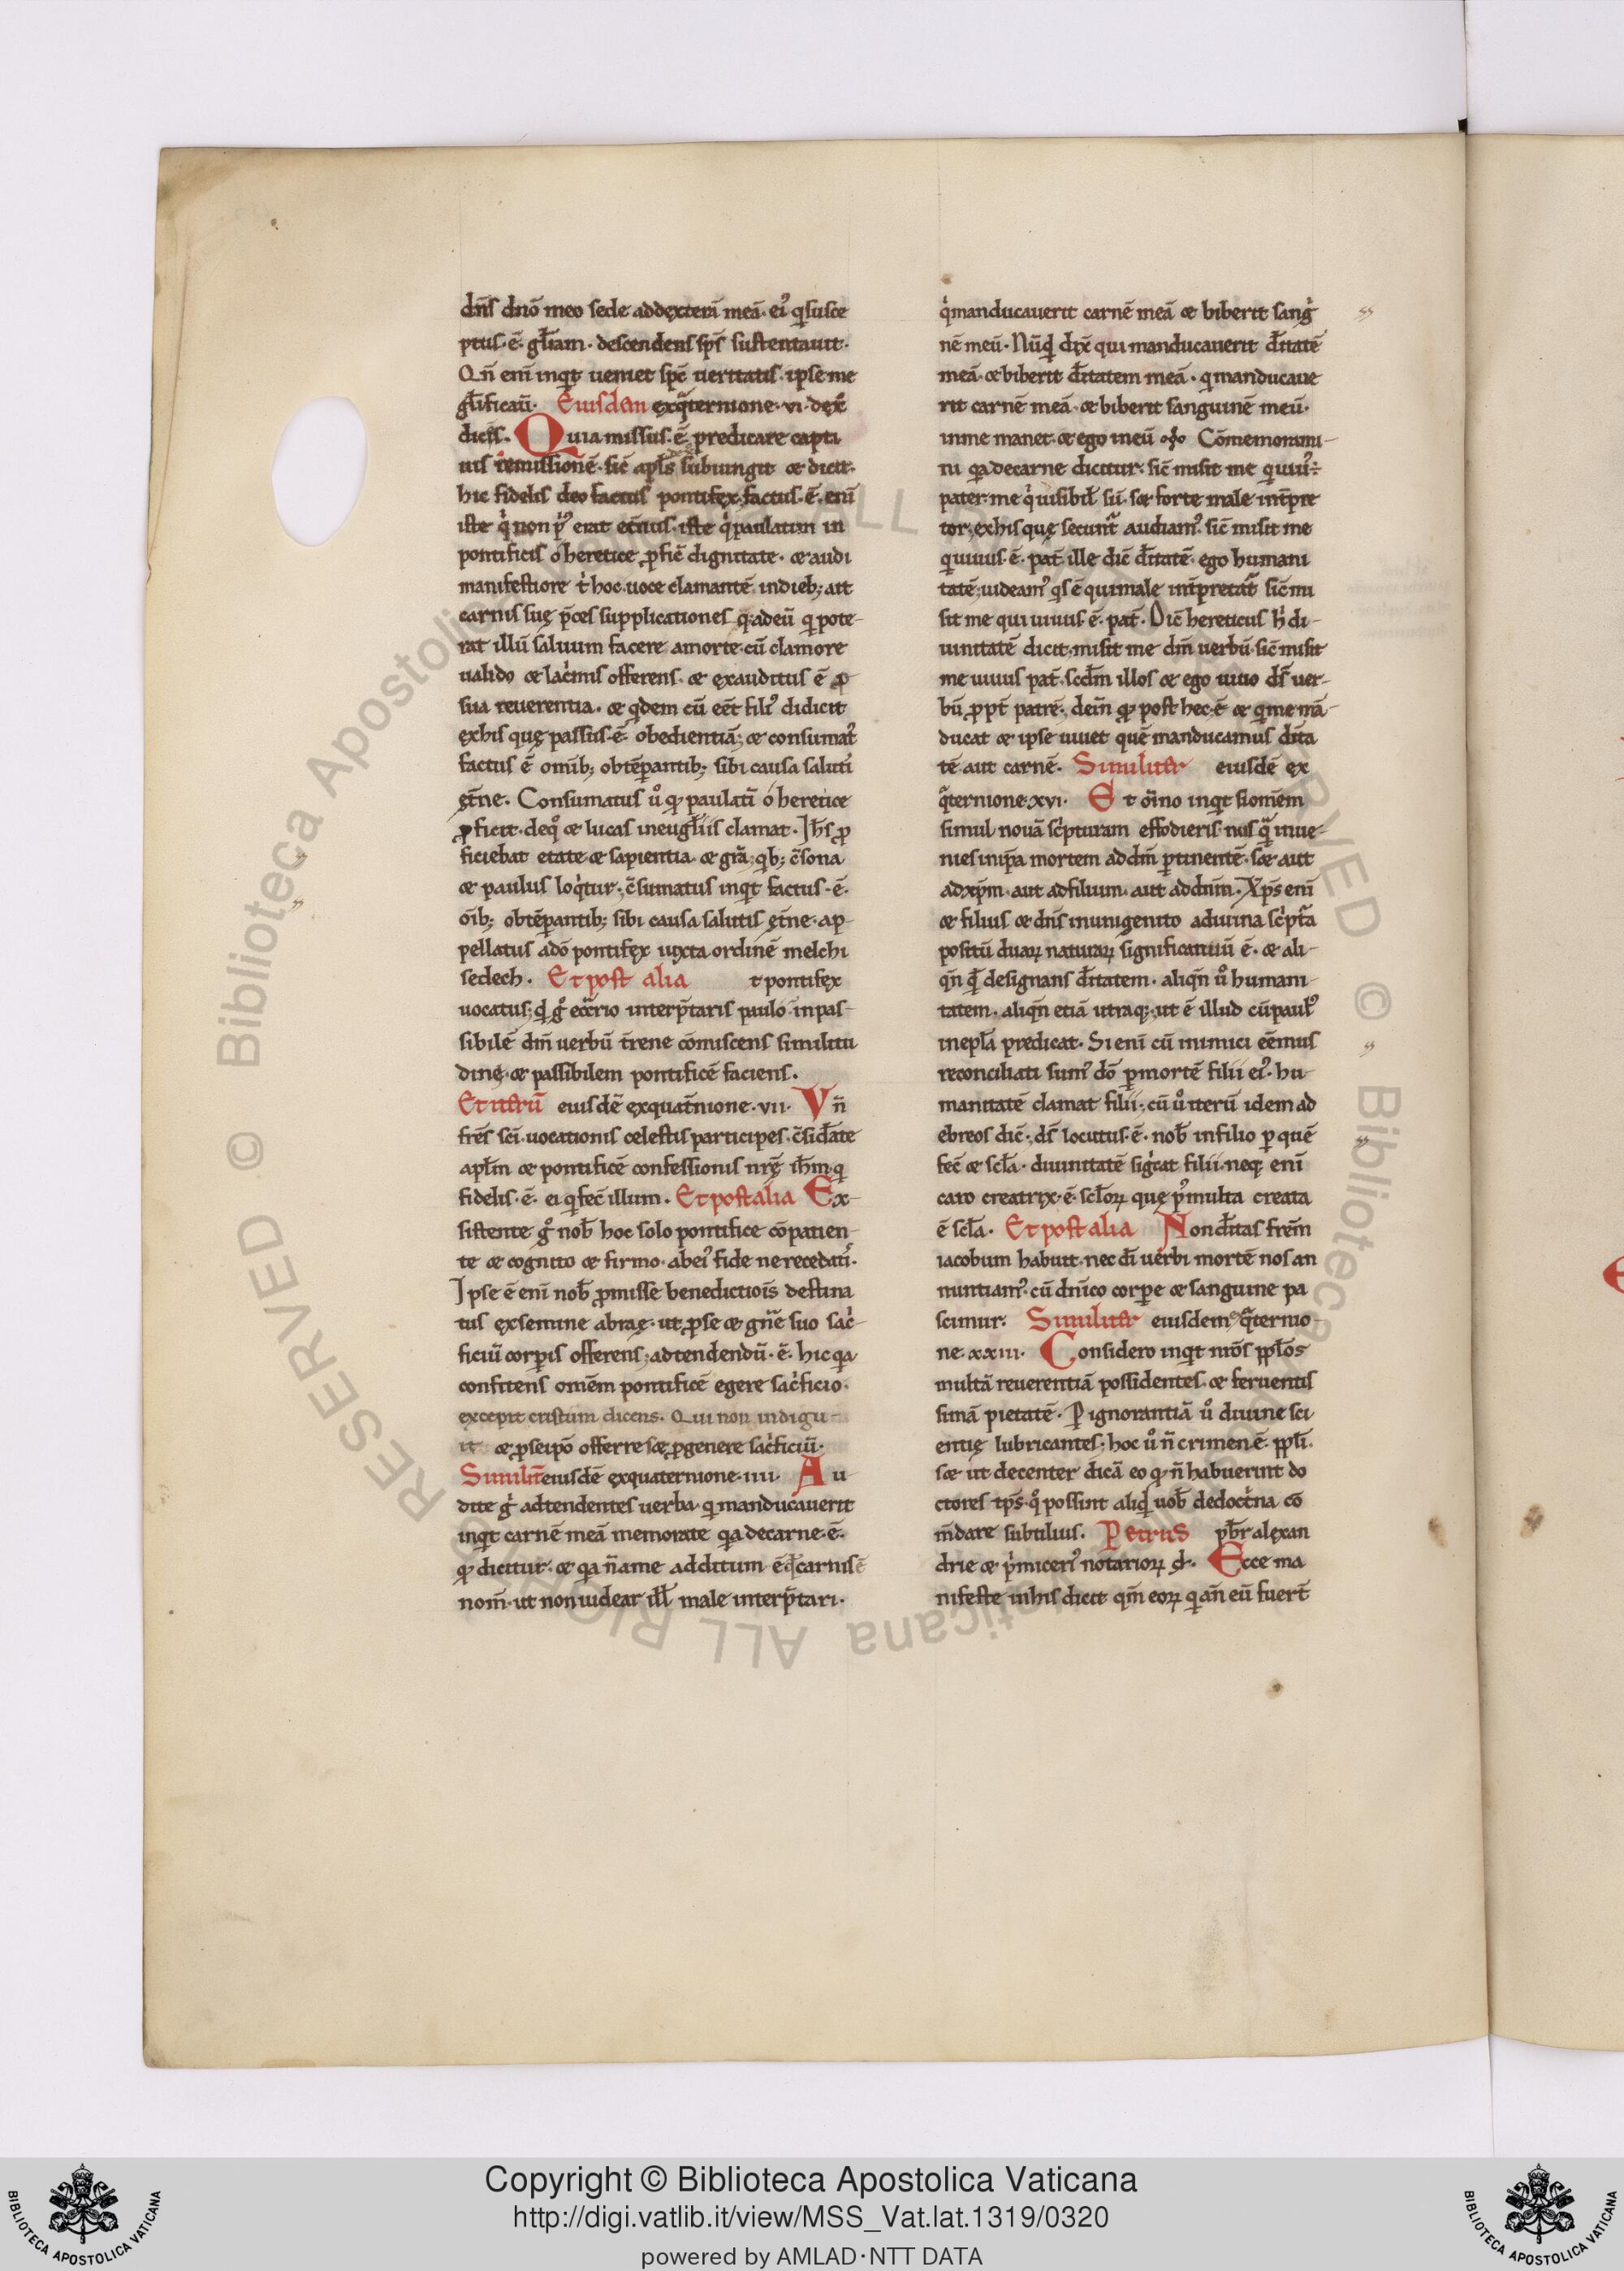 dn̄s dnō meo sede addęxterā meā· ei᾽ qͥ susce
ptus·ē·gl̄iam· descendens sp̄s sustentauit·
Qn̄ eni inqͥt ueniet spc̄ ueritatis· ipse me
gl̄ificaū· Eiusdem exqᷓternione·vi·dęx̄
dicēs· Quia missus·ē· predicare capti
uis remissionē· sic̄ apl̄s subiungit & dicit·
hic fidelis deo factus pontifęx factus·ē·eni
iste qͥ non pͥ᾽ erat et̄nus· iste qͥ paulatim in
pontificis ó heretice ꝓfic̄ dignitate· & audi
manifestiore t̄ hoc uoce clamantē indieb; ait
carnis suę p̄ces supplicationes q; adeū qͥ pote-
rat illū saluum facere amorte· cū clamore
ualido & lacͥmis offerens· & ęxauditus ē ꝓ
sua reuerentia· & qͥdem cū eēt fili᾽ didicit
ęxhis quę passus·ē· obedientiā; & consumat᾽
factus ē omīb; obtēꝑantib; sibi causa saluti᾽
ęt̄ne· Consumatus ů qͥ paulatī ó heretice
ꝓficit· deqͦ & lucas ineugl̄iis clamat· Ih̄s ꝓ
ficiebat etate & sapientia· & grā; qb; c̄sona
& paulus loqͥtur· c̄sumatus inqͥt factus·ē·
oīb; obtēꝑantib; sibi causa salutis ęt̄ne· ap
pellatus adō pontifęx iuxta ordinē melchi
sedech· Et post alia t pontifęx
uocatus; qͥ gͦ ec̄rio interp̄taris paulo inpas-
sibilē dm̄ uerbū t̄rene cōmiscens similitu
dinę· & passibilem pontificē faciens·
Et iterū eiusdē ęxquat̄nione·vii· Vn̄
fr̄es sc̄i uocationis celestis participes· c̄sid̄ate
apl̄m & pontificē confessionis nr̄ę ih̄m qͥ
fidelis·ē· ei qͥ fec̄ illum· Et post alia Ex-
sistente gͦ nob̄ hoc solo pontifice cōpatien-
te & cognito & firmo· abei᾽ fide ne recedati᾽·
Ipse ē eni nob̄ ꝓmisse benedictiois destina
tus ęxsemine abraę· ut ꝓse & gn̄e suo sacͥ-
ficiū corꝑis offerens; adtendendū·ē· hic qͥa
confitens omēm pontificē egere sacͥficio·
excepit cristum dicens· Qui non indigu-
it & ꝓseipō offerre sꝫ ꝓgenere sacͥficiū·
Similit̄ eiusdē ęxquaternione·iiii· Au
dite gͥ adtendentes uerba· qͥ manducauerit
inqͥt carnē meā memorate qͥa decarne·ē·
qͥ dicitur· & qͥa n̄ ame additum ē qͥ carnis ē
nom̄· ut non uidear ill̄ male interp̄tari·
qͥ manducauerit carnē meā & biberit sangͥ
nē meū· Nūqͥ dix̄ qui manducauerit d̄itatē
meā· & biberit d̄itatem meā· qͥ manducaue
rit carnē meā· & biberit sanguinē meū·
inme manet· & ego ineū Cōmemorami-
ni qͥa decarne dicitur· sic̄ misit me qͥ uiu᾽
pater· me qͥ uisibil̄ sū· sꝫ forte male int̄pre
tor; ęxhis quę secuntᷓ audiam᾽· sic̄ misit me
qͥ uiuus·ē· pat̄· ille dic̄ d̄itatē· ego humani
tatē; uideam᾽ qͥs ē qui male int̄pretatᷓ sic̄ mi
sit me qui uiuus·ē· pat̄· Dic̄ hereticus h̄ di-
uinitatē dicit· misit me dm̄ uerbū· sic̄ misit
me uiuus pat̄· scdm̄ illos & ego uiuo ds̄ uer-
bū ꝓpt̄ patrē; dein̄ qͥ post hec·ē· & qͥ me mā-
ducat & ipse uiuet quē manducamus d̄ita
tē aut carnē· Similiter eiusdē ęx
qᷓternione·xvi· Et oīno inqͥt siomēm
simul nouā scͥpturam effodieris· nusqᷓ inue-
nies inip̄a mortem addm̄ ꝑtinentē· sꝫ aut
adxp̄m· aut adfilium· aut addnm̄· Xp̄s eni
& filius & dn̄s inunigenito adiuina scͥptᷓa
positū duaꝝ naturaꝝ significatiuū ē· & ali-
qn̄ qͥ designans d̄itatem· aliqn̄ ů humani-
tatem· aliqn̄ etiā utraq;· ut ē illud cū paul᾽
inepl̄a predicat· Si eni cū inimici eēmus
reconciliati sum᾽ dō ꝑmortē filii ei᾽· hu-
manitatē clamat filii; cū ů iterū idem ad
ebreos dic̄· ds̄ locutus·ē· nob̄ infilio ꝑ quē
fec̄ & scl̄a· diuinitatē sigͥcat filii· neq; eni
caro creatrix·ē· scl̄oꝝ quę pͥ᾽ multa creata
ē scl̄a· Et post alia Non d̄itas frēm
iacobum habuit· nec dī uerbi mortē nos an
nuntiam᾽· cū dn̄ico corꝑe & sanguine pa
scimur· Similiter eiusdem qᷓternio-
ne·xxiii· Considero inqͥt nr̄ōs pp̄l̄os
multā reuerentiā possidentes· & feruentis
simā pietatē· Ꝑ ignorantiā ů diuine sci
entię lubricantes· hoc ů n̄ crimen ē· pp̄l̄i·
sꝫ ut decenter dicā eo qͥ n̄ habuerint do
ctores tp̄s· qͦ possint aliqͥ uob̄ dedoctͥna cō
m̄dare subtilius· Petrus pb̄r alęxan
drie & pͥmiceri᾽ notarioꝝ d· Ecce ma
nifeste inhis dicit qm̄ eoꝝ qͥ an̄ eū fuer̄
Copyright © Biblioteca Apostolica Vaticana
http://digi.vatlib.it/view/MSS_Vat.lat.1319/0320
powered by AMLAD·NTT DATA
BIBLIOTECA APOSTOLICA VATICANA
BIBLIOTECA APOSTOLICA VATICANA